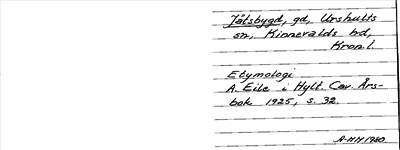 Jätsbygd, gd, Urshults
sn, Kinnevalds hd,
Kron.l.
Etymologi
A. Eile i Hylt. Cav. Års-
bok 1925, s. 32.
A-HH 1980.